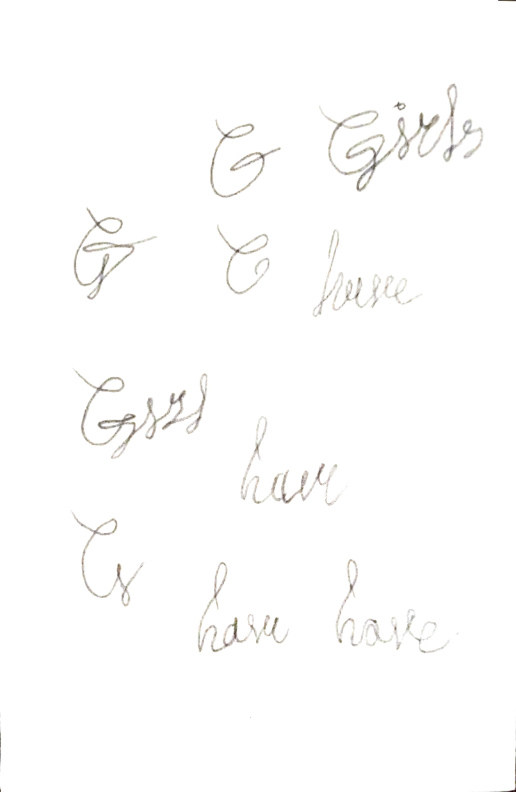 G Girls
G G have
Girl
have
G
have have